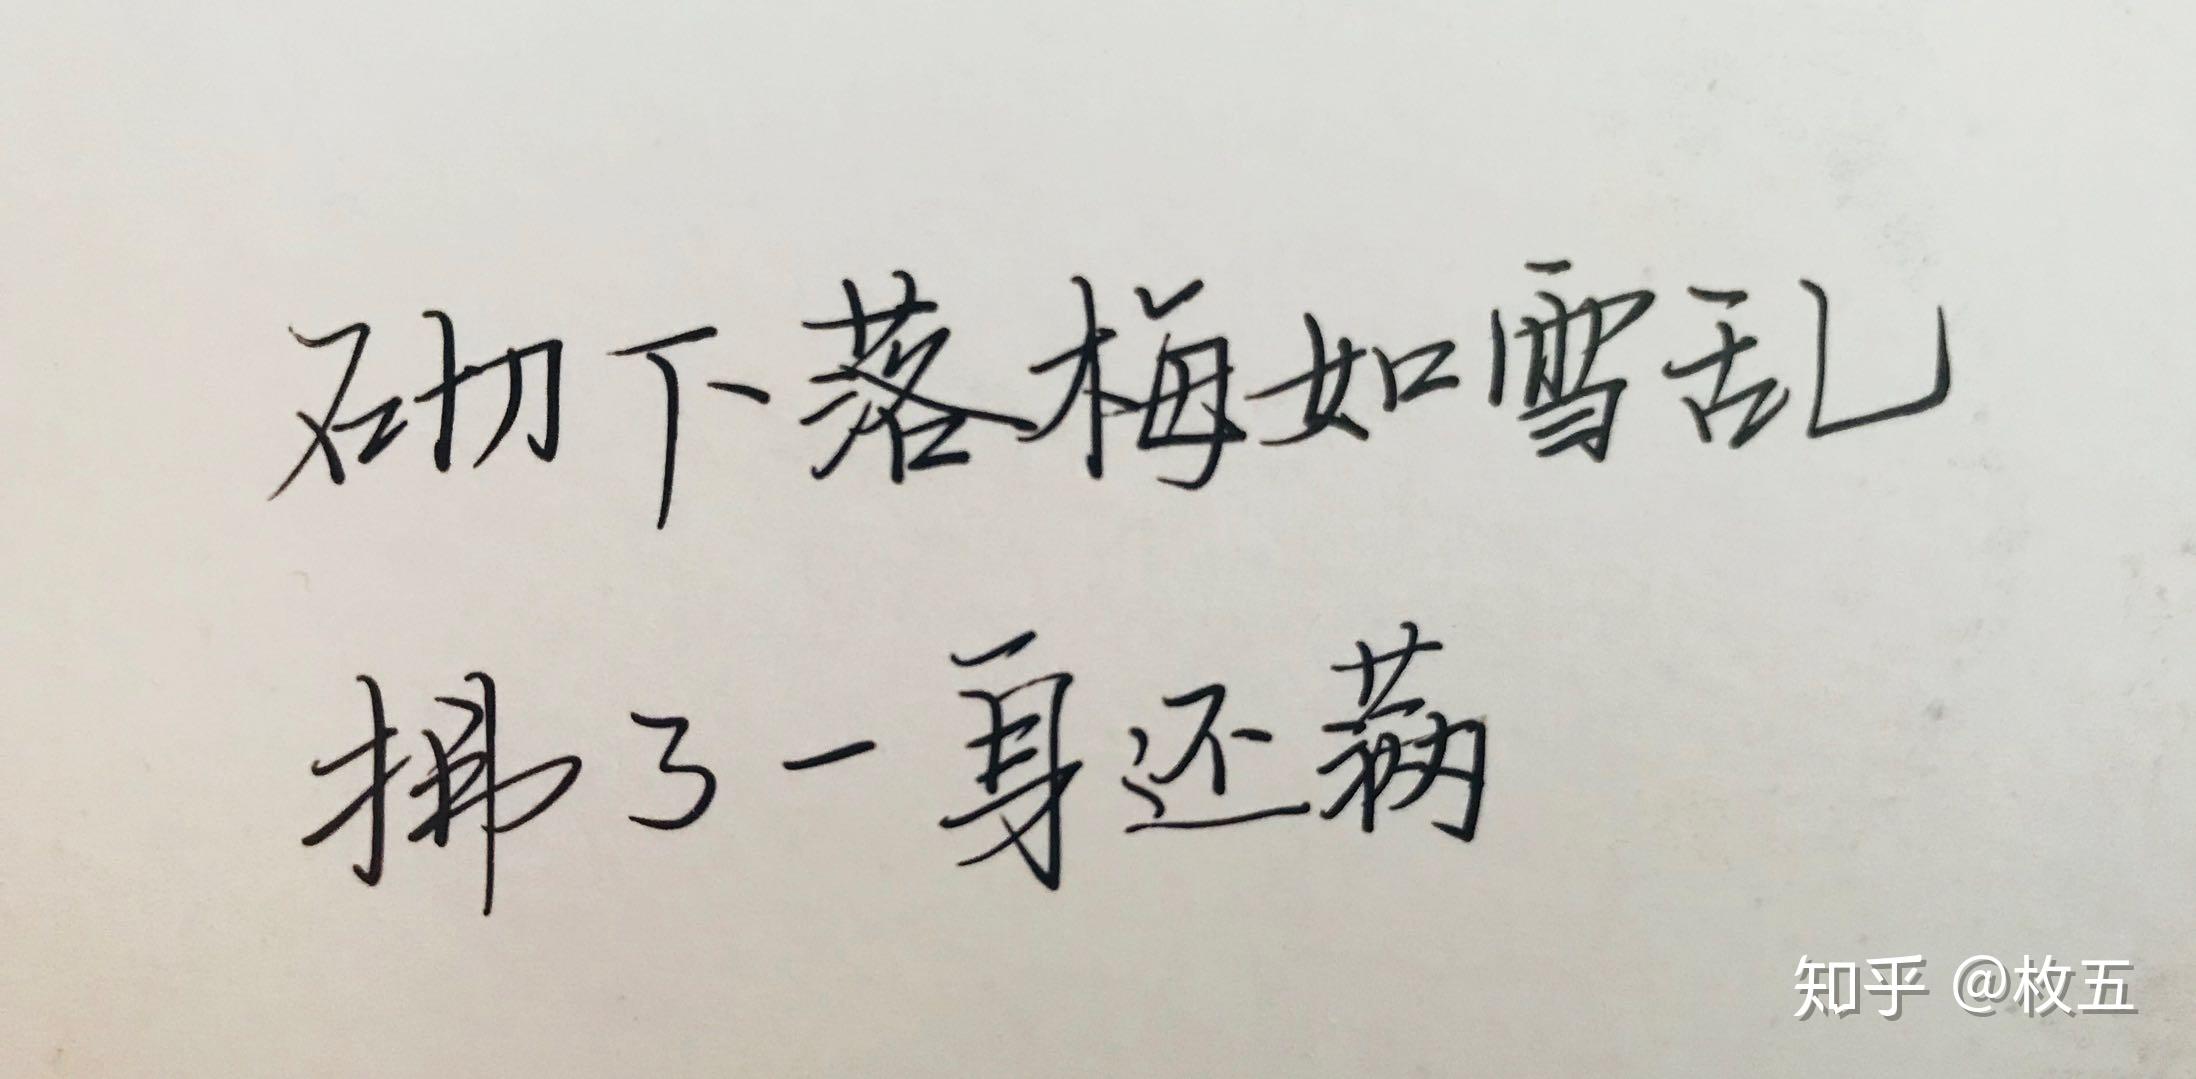 砌下落梅如雪乱
拂了一身还满
知乎 @枚五